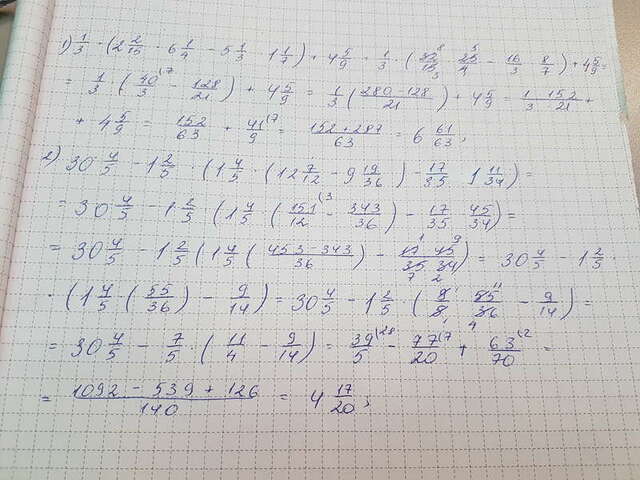 1) 1/3 · (2 2/15 · 6 1/4 - 5 1/3 · 1 1/7) + 4 5/9 = 1/3 · (32/15 · 25/4 - 16/3 · 8/7) + 4 5/9 =
= 1/3 · (40/3 - 128/21) + 4 5/9 = 1/3 (280 - 128/21) + 4 5/9 = 1/3 · 152/21 +
+ 4 5/9 = 152/63 + 41/9 = 152 + 287/63 = 6 61/63;
2) 30 4/5 - 1 2/5 · (1 4/5 · (12 7/12 - 9 19/36) - 17/35 · 1 11/34) =
= 30 4/5 - 1 2/5 (1 4/5 · (151/12 - 343/36) - 17/35 · 45/34) =
= 30 4/5 - 1 2/5 (1 4/5 (453 - 343/36) - 17/35 · 45/34) = 30 4/5 - 1 2/5 ·
· (1 4/5 · (55/36) - 9/14) = 30 4/5 - 1 2/5 · (55/36 - 9/14) =
= 30 4/5 - 7/5 · (11/4 - 9/14) = 39/5 - 77/20 + 63/70 =
= 1092 - 539 + 126/140 = 4 17/20;